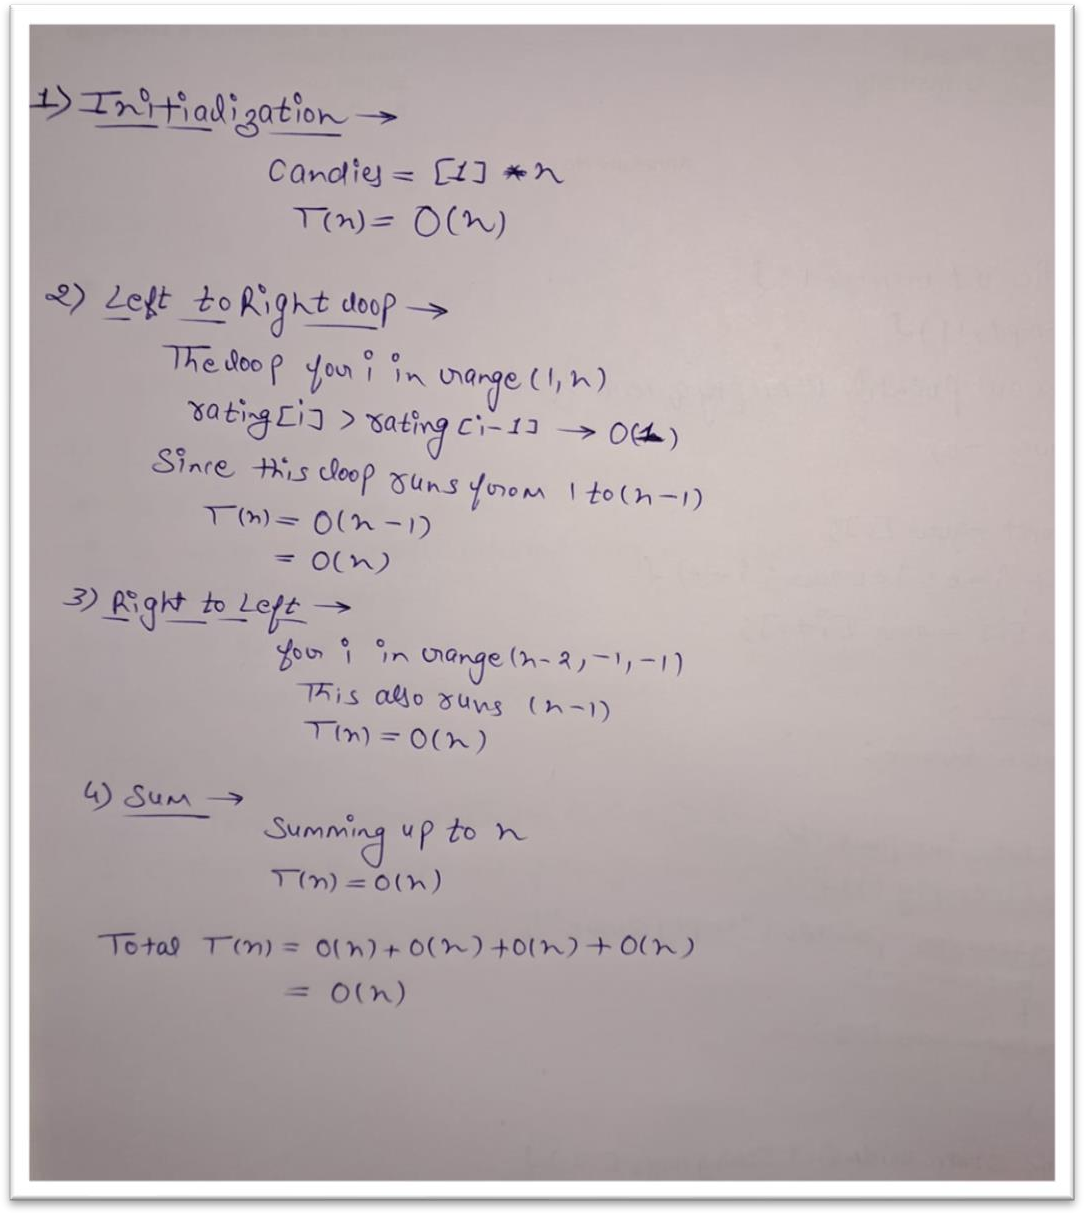 1) Initialization →
Candies = [1] * n
T(n) = O(n)
2) Left to Right loop →
The loop for i in range (1, n)
rating [i] > rating [i-1] → O(1)
Since this loop runs from 1 to (n-1)
T(n) = O(n-1)
= O(n)
3) Right to Left →
for i in range (n-2, -1, -1)
This also runs (n-1)
T(n) = O(n)
4) Sum →
Summing up to n
T(n) = O(n)
Total T(n) = O(n) + O(n) + O(n) + O(n)
= O(n)